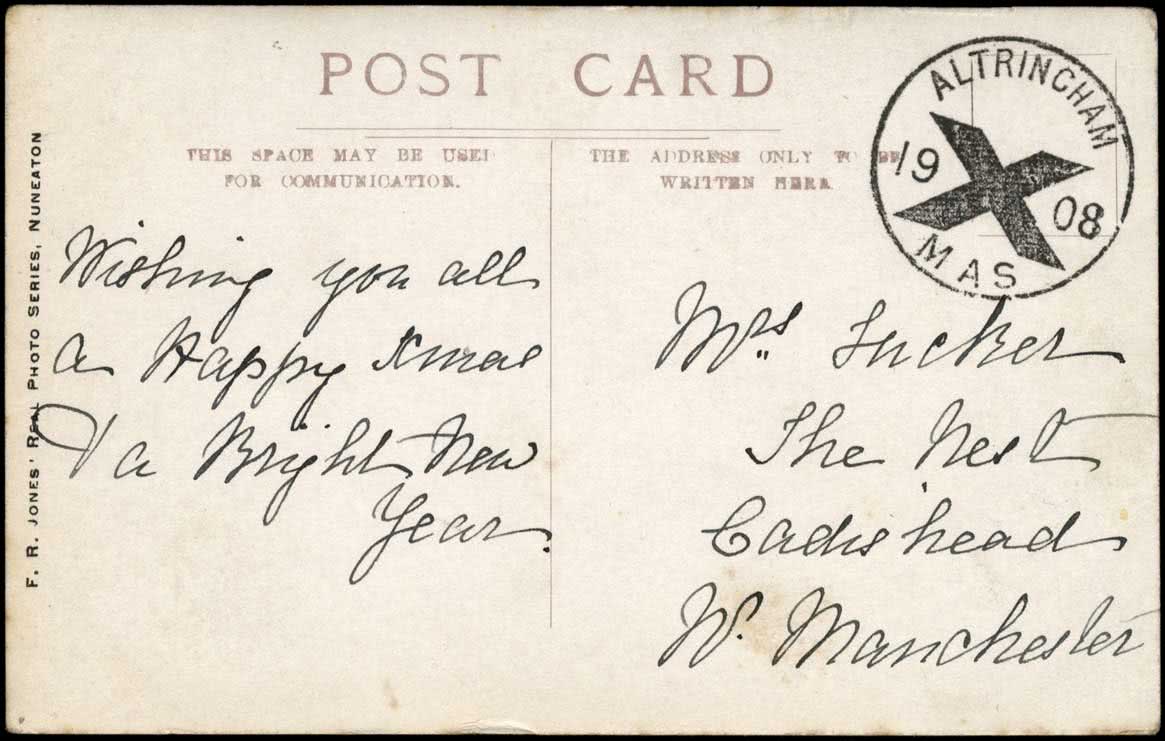 POST CARD
THIS SPACE MAY BE USED
FOR COMMUNICATION.
THE ADDRESS ONLY TO BE
WRITTEN HERE.
ALTRINCHAM
19 X 08
MAS
F. R. JONES' REAL PHOTO SERIES, NUNEATON
Wishing you all
a Happy Xmas
& a Bright New
Year.
Mrs Tucker
The Nest
Cadishead
N. Manchester